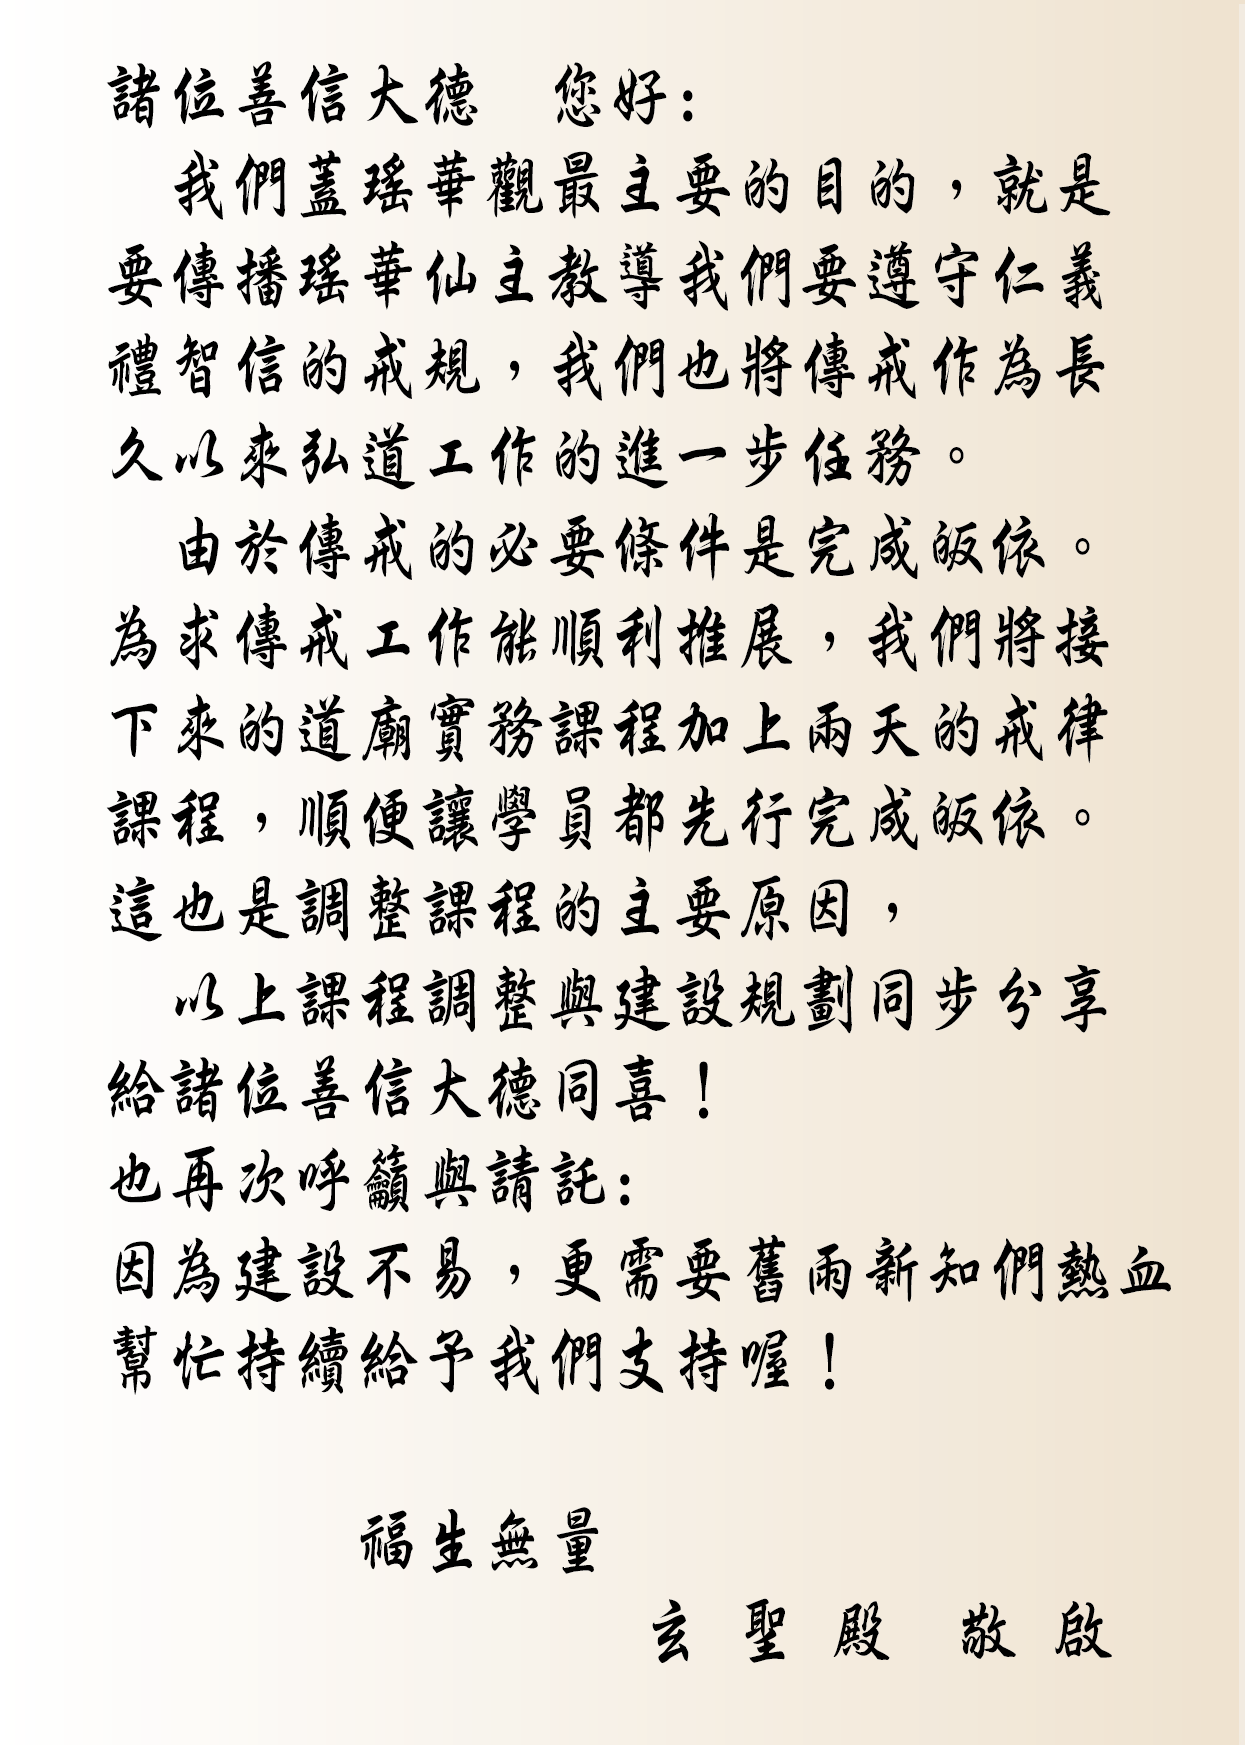 諸位善信大德　您好:
我們蓋瑤華觀最主要的目的，就是
要傳播瑤華仙主教導我們要遵守仁義
禮智信的戒規，我們也將傳戒作為長
久以來弘道工作的進一步任務。
由於傳戒的必要條件是完成皈依。
為求傳戒工作能順利推展，我們將接
下來的道廟實務課程加上兩天的戒律
課程，順便讓學員都先行完成皈依。
這也是調整課程的主要原因，
以上課程調整與建設規劃同步分享
給諸位善信大德同喜！
也再次呼籲與請託:
因為建設不易，更需要舊雨新知們熱血
幫忙持續給予我們支持喔！
福生無量
玄聖殿 敬啟